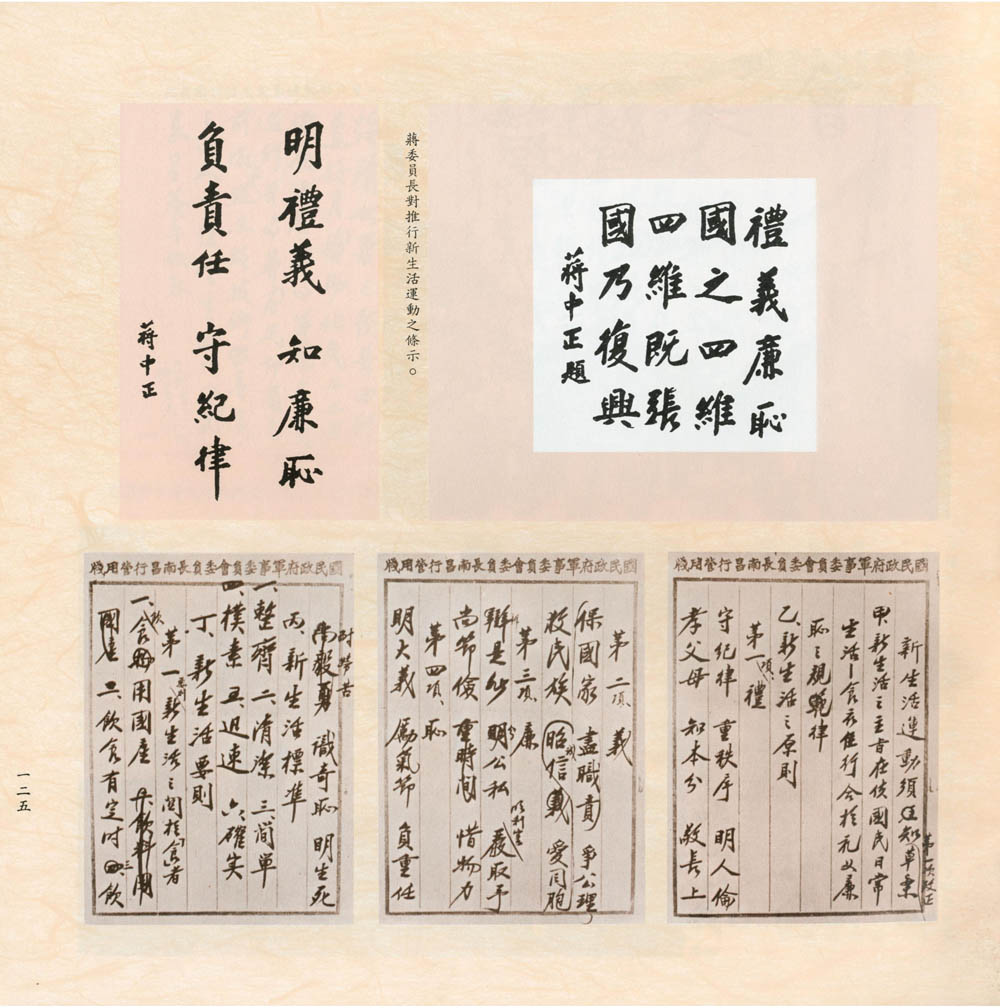 禮義廉恥
國之四維
四維既張
國乃復興
蔣中正題
蔣委員長對推行新生活運動之條示。
明禮義 知廉恥
負責任 守紀律
蔣中正
國民政府軍事委員會委員長南昌行營用牋
新生活運動須知草案
第一次改正
甲、新生活之主旨在使國民日常
生活「食衣住行」合於禮義廉
恥之規律
乙、新生活之原則
第一項、禮
守紀律 重秩序 明人倫
孝父母 知本分 敬長上
國民政府軍事委員會委員長南昌行營用牋
第二項、義
保國家 盡職責 爭公理
救民族 昭信義 愛同胞
第三項、廉
辨是非 明公私 嚴取予
尚節儉 重時間 惜物力
第四項、恥
明大義 勵氣節 負重任
國民政府軍事委員會委員長南昌行營用牋
耐勞苦
尚毅勇 識奇恥 明生死
丙、新生活標準
一、整齊 二、清潔 三、簡單
四、樸素 五、迅速 六、確实
丁、新生活要則
第一、新生活之関於食者
一、飲食用國產
國產 二、飲食有定时
一二五